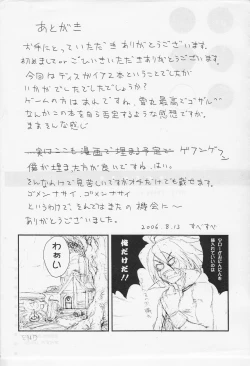 あとがき
お手にとっていただきありがとうございます。
初めましてor ごしいきいただきありがとうございます。
今回はディスガイア2本ということでしたが
いかがでしたでしたでしょうか？
ゲームの方はあれですね、雪丸最高でゴザル
なんかこの本を自ら否定するような感想ですが、
まあそんな感じ
実はここも漫画で埋まる予定
僕が埋まった方が良いですね、はい。
そんなわけで見苦しいですがオチだけでも載せます。
ゴメンナサイ、ゴメンナサイ
というわけで、それではまたの機会に〜
ありがとうございました。
2006.8.12
俺だけだ!!
わぁい